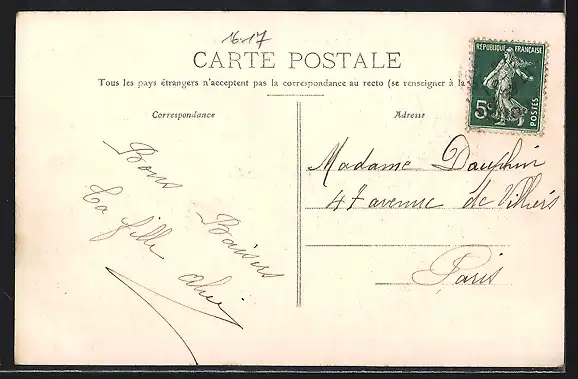 16-17
CARTE POSTALE
Tous les pays étrangers n'acceptent pas la correspondance au recto (se renseigner à la
Correspondance
Adresse
RÉPUBLIQUE FRANÇAISE
5c
POSTES
Bons Baisers
ta fille
Madame Dauphin
47 avenue de Villiers
Paris